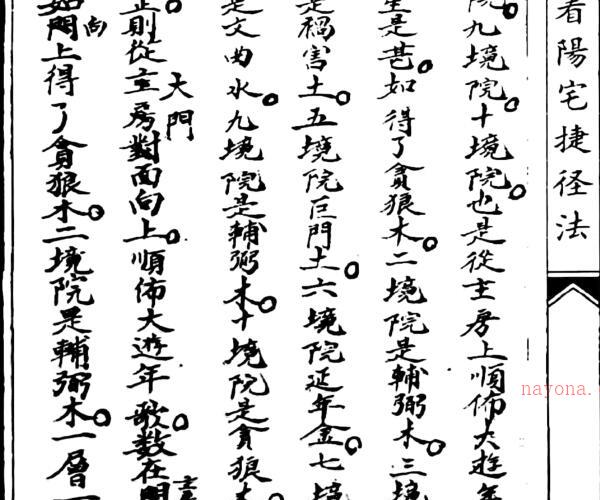 看陽宅捷径法
院九境院十境院也是從主房上順佈大遊年
星是甚如得了貪狼木二境院是輔弼木三境
是禍害土五境院巨門土六境院延年金七境
是文曲水九境院是輔弼木十境院是貪狼木
大門
正則從主房對面向上順佈大遊年歌数在門
如向門上得了貪狼木二境院是輔弼木一層一
nayona.